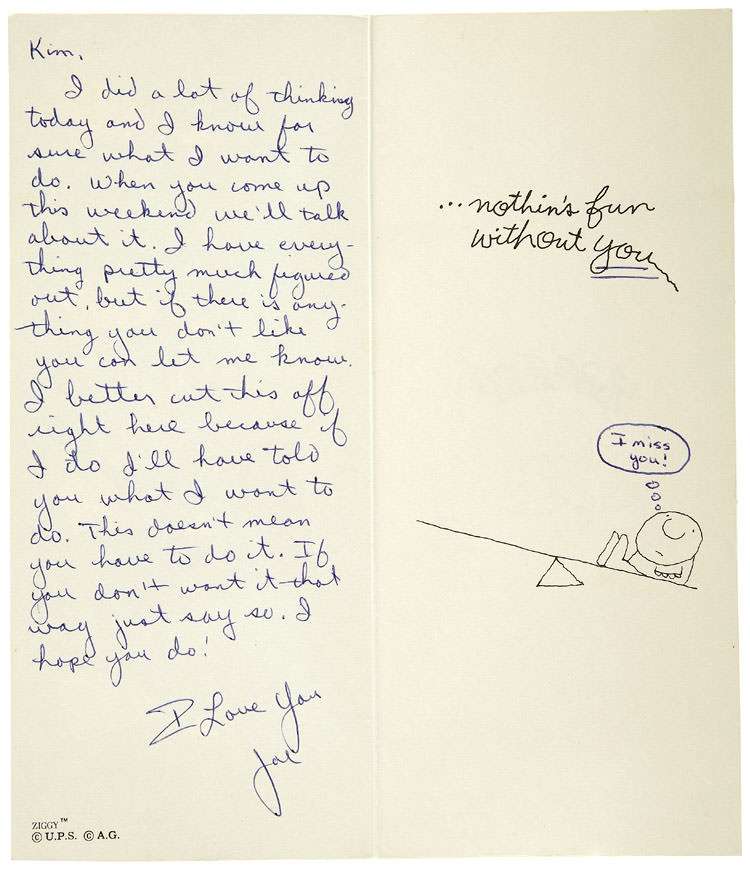 Kim,
I did a lot of thinking
today and I know for
sure what I want to
do. When you come up
this weekend we'll talk
about it. I have every-
thing pretty much figured
out, but if there is any-
thing you don't like
you can let me know.
I better cut this off
right here because if
I do I'll have told
you what I want to
do. This doesn't mean
you have to do it. If
you don't want it that
way just say so. I
hope you do!
I Love You
Joe
ZIGGY™
© U.P.S. © A.G.
...nothin's fun
without you
I miss
you!